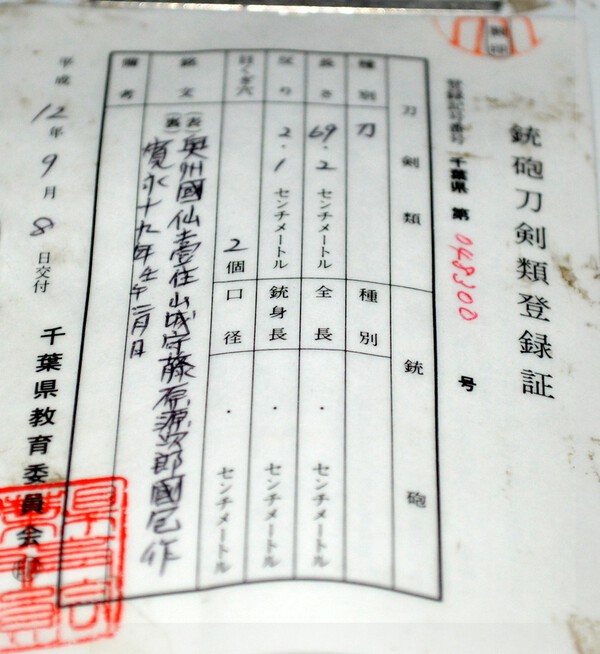 銃砲刀剣類登録証
登録記号番号 千葉県 第 048300 号
刀剣類 銃砲
種別 刀 種別
長さ 69.2 センチメートル 全長 . センチメートル
反り 2.1 センチメートル 銃身長 . センチメートル
目くぎ穴 2個 口径 . センチメートル
銘文 (表) 奥州國仙臺住山城守藤原源次郎國包作
(裏) 寛永十九年壬午二月日
備考
平成12年9月8日交付
千葉県教育委員会